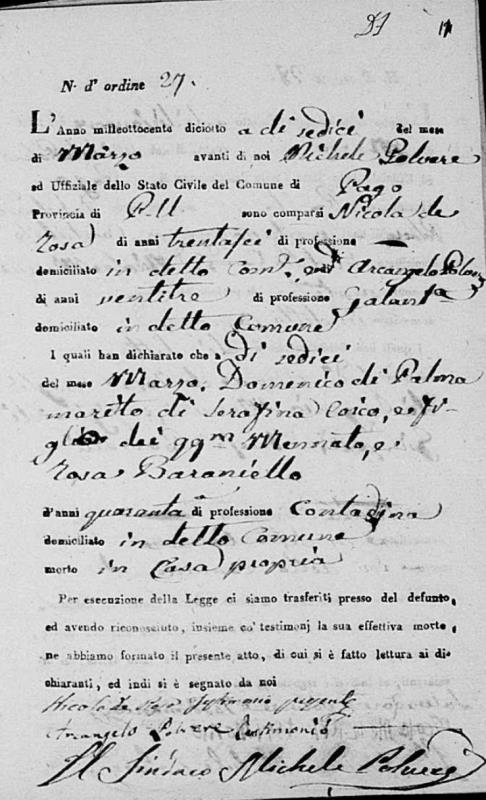 N. d'ordine 27.
L'Anno milleottocento diciotto a dì sedici del mese
di Marzo avanti di noi Michele Polvere
ed Uffiziale dello Stato Civile del Comune di Pago
Provincia di P. U. sono comparsi Nicola de
Rosa di anni trentasei di professione —
domiciliato in detto Com.e ed Arcangelo Polvere
di anni ventitre di professione Galant.a
domiciliato in detto Comune
I quali han dichiarato che a dì sedici
del mese Marzo, Domenico di Palma
marito di Serafina Coico, e fi-
glio dei qqm Mennato, e
Rosa Baraniello
d'anni quaranta di professione Contadina
domiciliato in detto Comune
morto in Casa propria
Per esecuzione della Legge ci siamo trasferiti presso del defunto,
ed avendo riconosciuto, insieme co' testimonj la sua effettiva morte,
ne abbiamo formato il presente atto, di cui si è fatto lettura ai di-
chiaranti, ed indi si è segnato da noi
Nicola de Rosa testimonio presente
Arcangelo Polvere Testimonio
Il Sindaco Michele Polvere